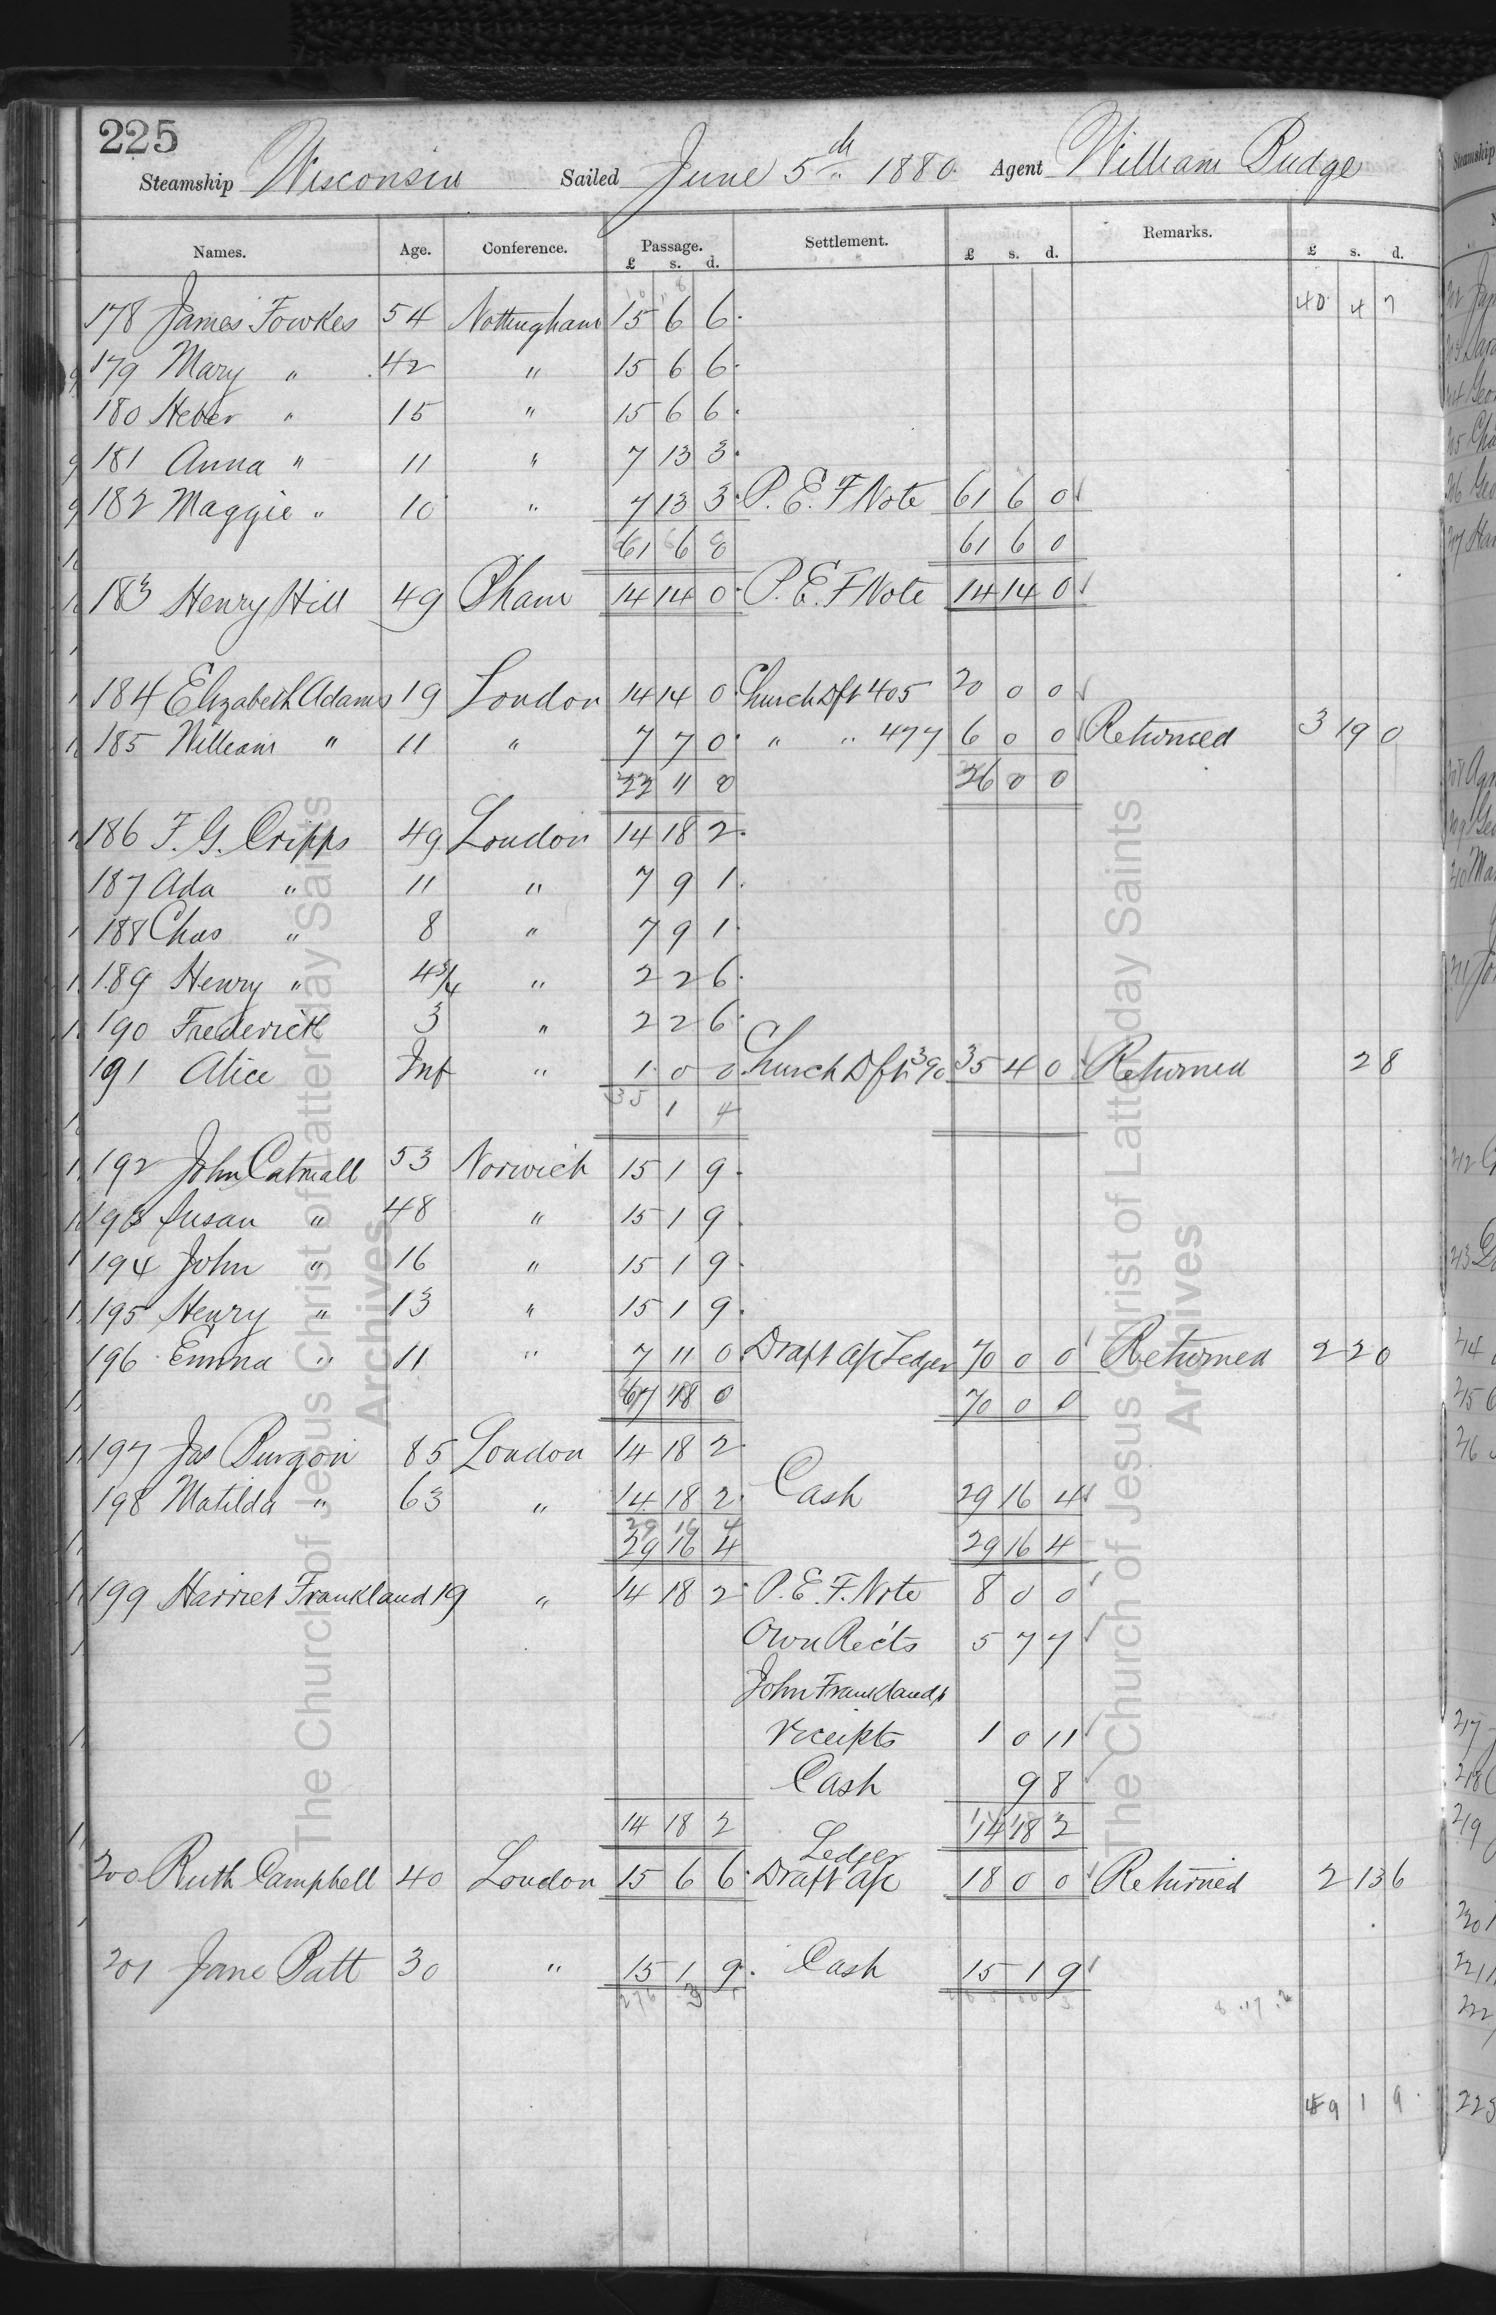 225
Steamship Wisconsin Sailed June 5th 1880. Agent William Budge
Names. Age. Conference. Passage. £ s. d. Settlement. £ s. d. Remarks. £ s. d.
178 James Fowkes 54 Nottingham 15 6 6 40 4 7
179 Mary " 42 " 15 6 6
180 Heber " 15 " 15 6 6
181 Anna " 11 " 7 13 3
182 Maggie " 10 " 7 13 3 P. E. F Note 61 6 0
61 6 0 61 6 0
183 Henry Hill 49 Bham 14 14 0 P. E. F Note 14 14 0
184 Elizabeth Adams 19 London 14 14 0 Church Dft 405 20 0 0
185 William " 11 " 7 7 0 " " 477 6 0 0 Returned 3 19 0
22 11 0 26 0 0
186 F. G. Cripps 49 London 14 18 2
187 Ada " 11 " 7 9 1
188 Chas " 8 " 7 9 1
189 Henry " 4 3/4 " 2 2 6
190 Frederick 3 " 2 2 6
191 Alice Inf " 1 0 0 Church Dft 390 35 4 0 Returned 2 8
35 1 4
192 John Catmall 53 Norwich 15 1 9
193 Susan " 48 " 15 1 9
194 John " 16 " 15 1 9
195 Henry " 13 " 15 1 9
196 Emma " 11 " 7 11 0 Draft a/c Ledger 70 0 0 Returned 2 2 0
67 18 0 70 0 0
197 Jas Burgon 85 London 14 18 2
198 Matilda " 63 " 14 18 2 Cash 29 16 4
29 16 4
29 16 4 29 16 4
199 Harriet Frankland 19 " 14 18 2 P. E. F. Note 8 0 0
Own Rec'ts 5 7 7
John Frankland's
receipts 1 0 11
Cash 9 8
14 18 2 14 18 2
Ledger
200 Ruth Campbell 40 London 15 6 6 Draft a/c 18 0 0 Returned 2 13 6
201 Jane Patt 30 " 15 1 9 Cash 15 1 9
276 3
8 17 2
49 1 9
The Church of Jesus Christ of Latter-day Saints
Archives
The Church of Jesus Christ of Latter-day Saints
Archives